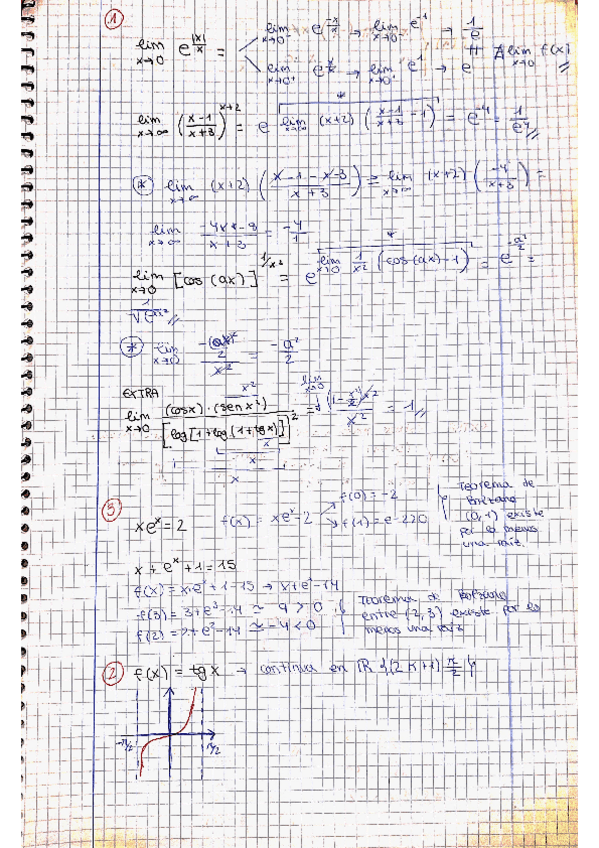 ①
lim x→0 e^(|x|/x) = lim x→0⁻ e^(-x/x) → lim x→0⁻ e^-1 → 1/e
lim x→0⁺ e^(x/x) → lim x→0⁺ e^1 → e
∄ lim x→0 f(x)
lim x→∞ ((x-1)/(x+3))^(x+2) = e^(lim x→∞ (x+2) ((x-1)/(x+3) - 1)) = e^-4 = 1/e^4
(*) lim x→∞ (x+2) ((x-1-x-3)/(x+3)) = lim x→∞ (x+2) (-4/(x+3)) =
lim x→∞ (-4x-8)/(x+3) = -4/1
lim x→0 [cos(ax)]^(1/x²) = e^(lim x→0 1/x² (cos(ax)-1)) = e^(-a²/2) =
(*) lim x→0 (-(ax)²/2)/x² = -a²/2
EXTRA
lim x→0 (cosx)·(senx²)/[log[1+log(1+tgx)]]² = lim x→0 (1-x²/2)x²/x² = 1
x²
x
x
x
③
xe^x = 2 f(x) = xe^x-2 f(0) = -2
f(1) = e-2>0
Teorema de
Bolzano
(0,1) existe
por lo menos
una raíz.
x + e^x + 1 = 15
f(x) = x+e^x+1-15 → x+e^x-14
f(3) = 3+e^3-14 ≃ 9 > 0
f(2) = 2+e^2-14 ≃ -4 < 0
Teorema de Bolzano
entre (2,3) existe por lo
menos una raíz
② f(x) = tgx → continua en ℝ \{(2k+1) π/2}
-π/2 π/2